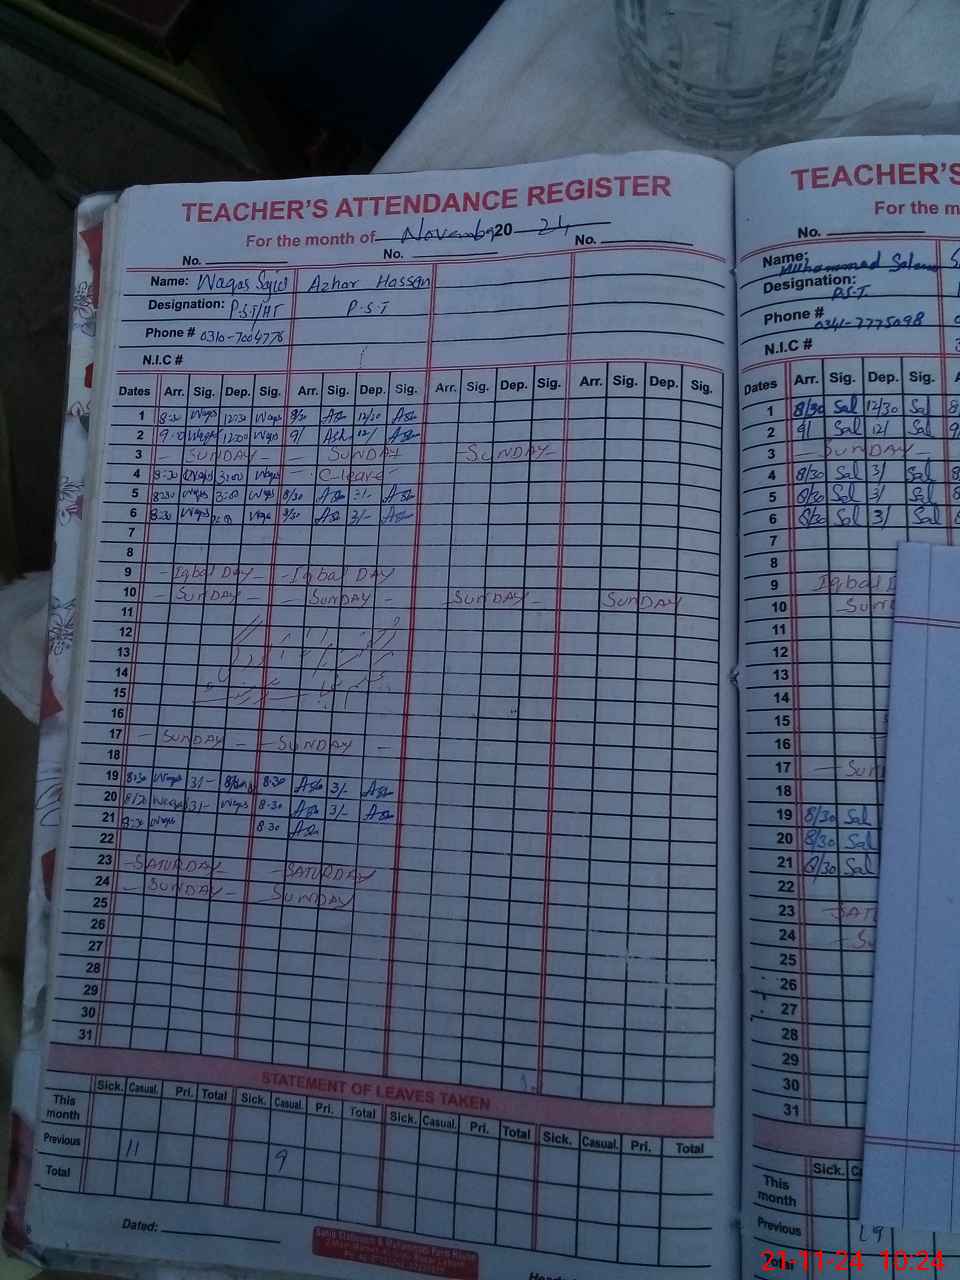 TEACHER'S ATTENDANCE REGISTER
For the month of November 2024
No. No. No.
Name: Waqas Sajid Azhar Hassan
Designation: P.S.T/HT P.S.T
Phone # 0310-7004776
N.I.C #
Dates Arr. Sig. Dep. Sig. Arr. Sig. Dep. Sig. Arr. Sig. Dep. Sig. Arr. Sig. Dep. Sig.
1 8:30 Waqs 12:30 Waqs 8/30 Ash 12/30 Ash
2 9:00 Waqs 12:00 Waqs 9/ Ash 12/ Ash
3 - SUNDAY - - SUNDAY - SUNDAY -
4 8:30 Waqs 3:00 Waqs - C-leave -
5 8:30 Waqs 3:00 Waqs 8/30 Ash 3/- Ash
6 8:30 Waqs Waqs 8/30 Ash 3/- Ash
7
8
9 - Iqbal Day - - Iqbal DAY
10 - SUNDAY - - SUNDAY - - SUNDAY - SUNDAY
11
12
13
14
15
16
17 - SUNDAY - - SUNDAY -
18
19 8:30 Waqs 3/- 8:30 Ash 3/- Ash
20 8/30 Waqs 3/- Waqs 8:30 Ash 3/- Ash
21 8:30 Waqs 8:30 Ash
22
23 - SATURDAY - - SATURDAY
24 - SUNDAY - SUNDAY
25
26
27
28
29
30
31
STATEMENT OF LEAVES TAKEN
Sick. Casual. Pri. Total Sick. Casual. Pri. Total Sick. Casual. Pri. Total Sick. Casual. Pri. Total
This month
Previous 11 9
Total
Dated:
TEACHER'S
For the m
No.
Name: Muhammad Salem
Designation: P.S.T.
Phone # 0341-7775098
N.I.C #
Dates Arr. Sig. Dep. Sig.
1 8/30 Sal 12/30 Sal
2 9/ Sal 12/ Sal
3 - SUNDAY -
4 8/30 Sal 3/ Sal
5 8/30 Sal 3/ Sal
6 8/30 Sal 3/ Sal
7
8
9 Iqbal D
10 - SUN
11
12
13
14
15
16
17 - SUN
18
19 8/30 Sal
20 8/30 Sal
21 8/30 Sal
22
23 - SAT
24 - S
25
26
27
28
29
30
31
Sick.
This month
Previous 29
Total
21-11-24 10:24